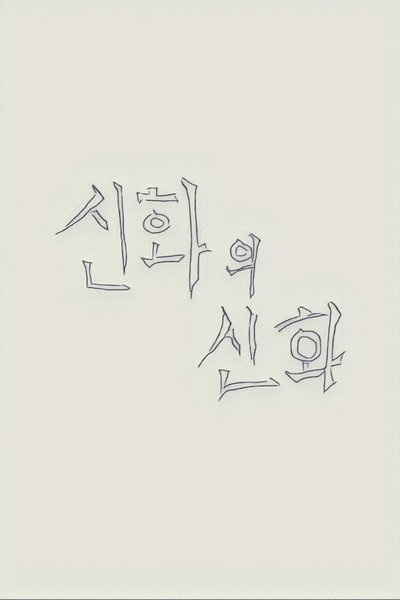 신화의
신화